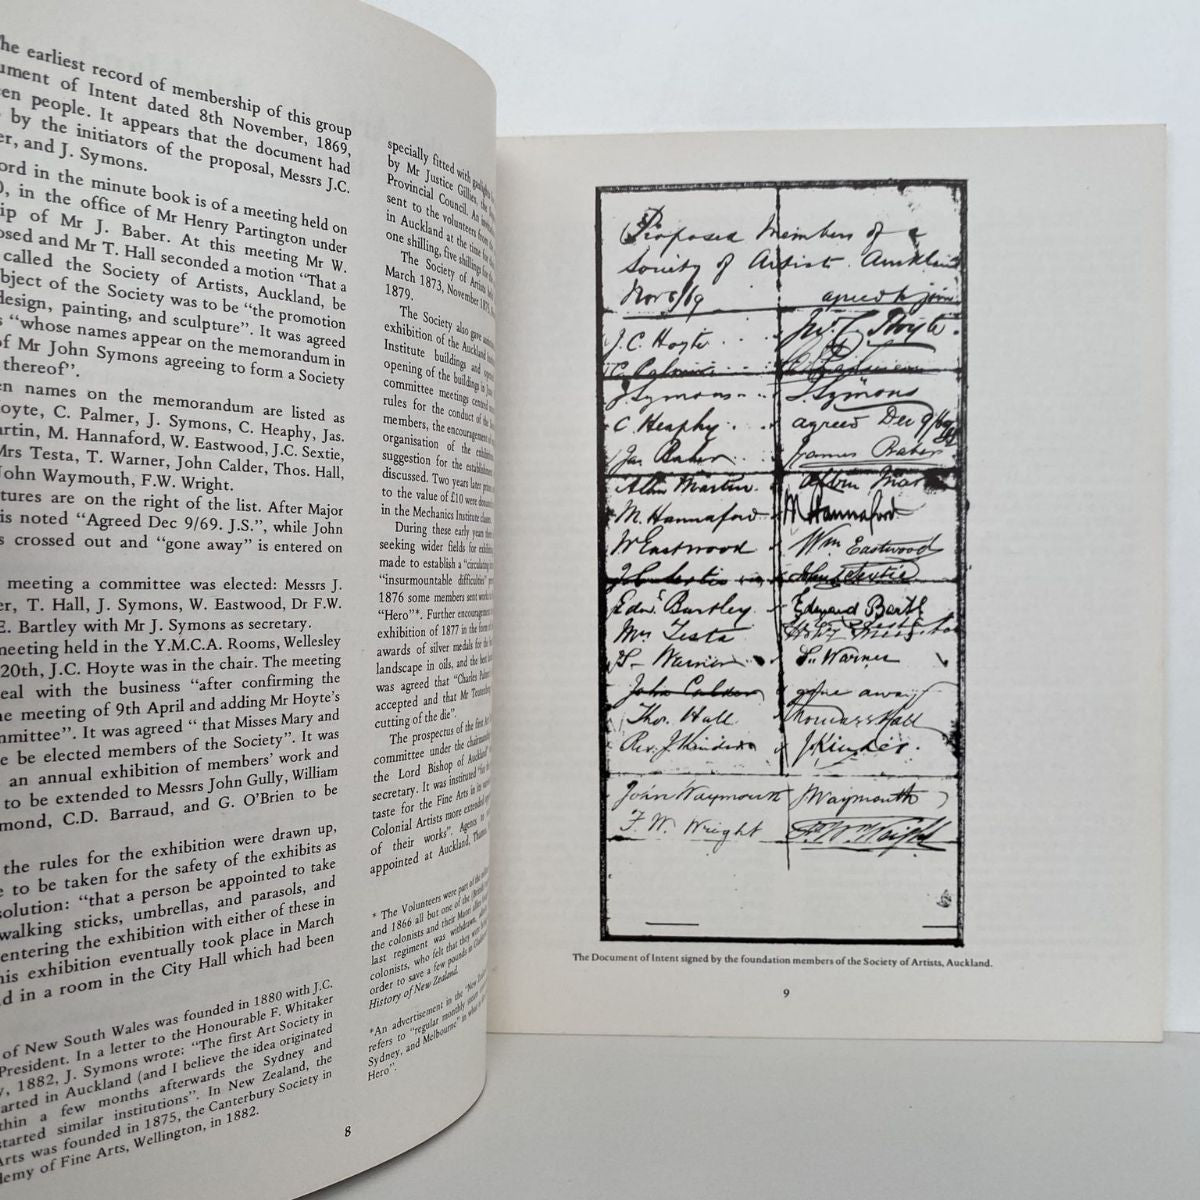 he earliest record of membership of this group
ument of Intent dated 8th November, 1869,
en people. It appears that the document had
by the initiators of the proposal, Messrs J.C.
er, and J. Symons.
ord in the minute book is of a meeting held on
0, in the office of Mr Henry Partington under
ip of Mr J. Baber. At this meeting Mr W.
osed and Mr T. Hall seconded a motion "That a
called the Society of Artists, Auckland, be
bject of the Society was to be "the promotion
design, painting, and sculpture". It was agreed
s "whose names appear on the memorandum in
of Mr John Symons agreeing to form a Society
thereof".
en names on the memorandum are listed as
oyte, C. Palmer, J. Symons, C. Heaphy, Jas.
artin, M. Hannaford, W. Eastwood, J.C. Sextie,
Mrs Testa, T. Warner, John Calder, Thos. Hall,
John Waymouth, F.W. Wright.
tures are on the right of the list. After Major
is noted "Agreed Dec 9/69. J.S.", while John
s crossed out and "gone away" is entered on
meeting a committee was elected: Messrs J.
er, T. Hall, J. Symons, W. Eastwood, Dr F.W.
E. Bartley with Mr J. Symons as secretary.
meeting held in the Y.M.C.A. Rooms, Wellesley
20th, J.C. Hoyte was in the chair. The meeting
eal with the business "after confirming the
he meeting of 9th April and adding Mr Hoyte's
mmittee". It was agreed " that Misses Mary and
e be elected members of the Society". It was
an annual exhibition of members' work and
to be extended to Messrs John Gully, William
mond, C.D. Barraud, and G. O'Brien to be
the rules for the exhibition were drawn up,
e to be taken for the safety of the exhibits as
solution: "that a person be appointed to take
walking sticks, umbrellas, and parasols, and
entering the exhibition with either of these in
his exhibition eventually took place in March
d in a room in the City Hall which had been
of New South Wales was founded in 1880 with J.C.
President. In a letter to the Honourable F. Whitaker
y, 1882, J. Symons wrote: "The first Art Society in
arted in Auckland (and I believe the idea originated
thin a few months afterwards the Sydney and
started similar institutions". In New Zealand, the
Arts was founded in 1875, the Canterbury Society in
demy of Fine Arts, Wellington, in 1882.
8
specially fitted with
by Mr Justice Gillies, the
Provincial Council. An
sent to the volunteers from the
in Auckland at the time for the
one shilling, five shillings for the
The Society of Artists
March 1873, November 1875,
1879.
The Society also gave
exhibition of the Auckland
Institute buildings and
opening of the buildings in
committee meetings centred
rules for the conduct of the
members, the encouragement of
organisation of the exhibition
suggestion for the establishment
discussed. Two years later
to the value of £10 were
in the Mechanics Institute
During these early years
seeking wider fields for
made to establish a "circulating
"insurmountable difficulties"
1876 some members sent work
"Hero"*. Further encouragement
exhibition of 1877 in the form of
awards of silver medals for the
landscape in oils, and the best
was agreed that "Charles
accepted and that Mr
cutting of the die".
The prospectus of the first Art
committee under the chairmanship
the Lord Bishop of Auckland
secretary. It was instituted
taste for the Fine Arts in its
Colonial Artists more extended
of their works". Agents
appointed at Auckland, Thames
* The Volunteers were part of the
and 1866 all but one of the
the colonists and their Maori
last regiment was withdrawn,
colonists, who felt that they were
order to save a few pounds
History of New Zealand.
*An advertisement in the "New
refers to "regular monthly
Sydney, and Melbourne"
Hero".
Proposed Members of a
Society of Artists. Auckland
Nov 8/69 agreed to join
J.C. Hoyte Jno. C Hoyte.
C. Palmer
J Symons J Symons
C Heaphy agreed Dec 9/69
Jas Baber James Baber
Albin Martin Albin Martin
M. Hannaford M Hannaford
W Eastwood Wm Eastwood
J C Sextie John Sextie
Edw. Bartley Edward Bartley
Mrs Testa
T- Warner Warner
John Calder gone away
Thos. Hall Thomas Hall
Rev. J Kinder J Kinder.
John Waymouth J Waymouth
F. W. Wright F. W. Wright
The Document of Intent signed by the foundation members of the Society of Artists, Auckland.
9